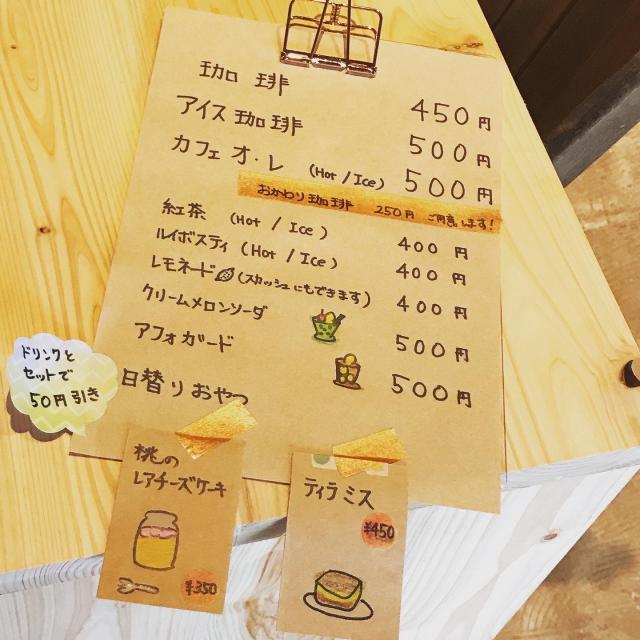 珈琲 450円
アイス珈琲 500円
カフェオ・レ (Hot / Ice) 500円
おかわり珈琲 250円 ご用意します!
紅茶 (Hot / Ice) 400円
ルイボスティ (Hot / Ice) 400円
レモネード (スカッシュにもできます) 400円
クリームメロンソーダ 500円
アフォガード 500円
日替りおやつ
ドリンクと
セットで
50円引き
桃の
レアチーズケーキ
¥350
ティラミス
¥450